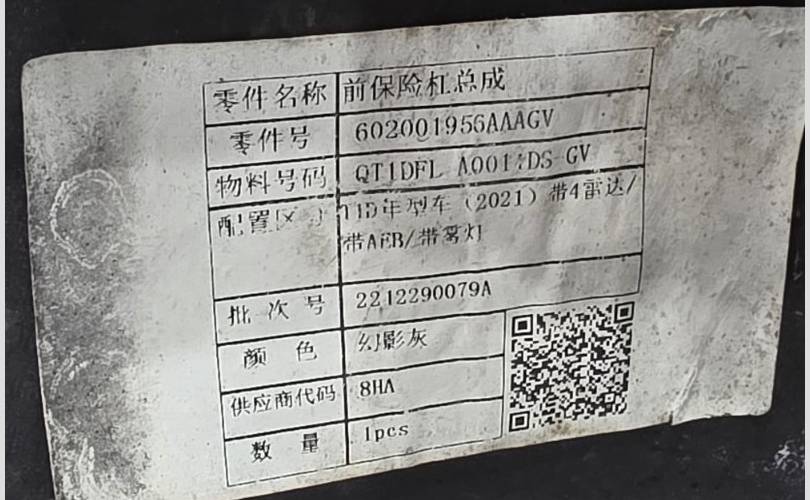 零件名称 前保险杠总成
零件号 602001956AAAGV
物料号码 QT1DFL A001 DS GV
配置区 T1D年型车（2021）带4雷达/
带AEB/带雾灯
批次号 2212290079A
颜 色 幻影灰
供应商代码 8HA
数 量 1pcs